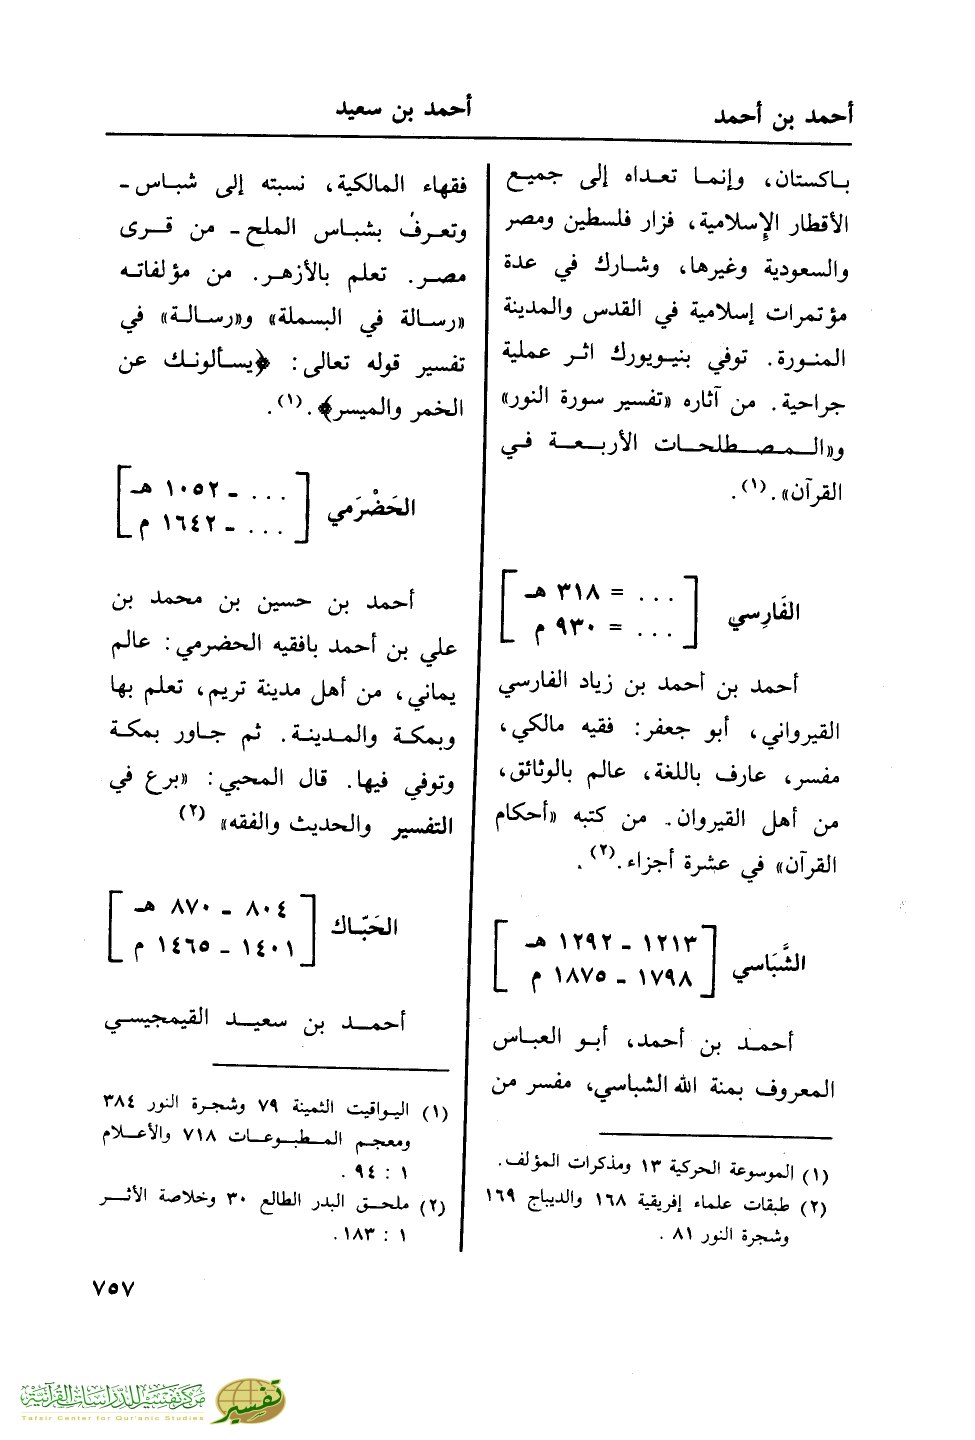 أحمد بن أحمد
أحمد بن سعيد
باكستان، وإنما تعداه إلى جميع
الأقطار الإسلامية، فزار فلسطين ومصر
والسعودية وغيرها، وشارك في عدة
مؤتمرات إسلامية في القدس والمدينة
المنورة. توفي بنيويورك اثر عملية
جراحية. من آثاره «تفسير سورة النور»
و«المصطلحات الأربعة في
القرآن».(١).
الفَارِسي
... = ٣١٨ هـ
... = ٩٣٠ م
أحمد بن أحمد بن زياد الفارسي
القيرواني، أبو جعفر: فقيه مالكي،
مفسر، عارف باللغة، عالم بالوثائق،
من أهل القيروان. من كتبه «أحكام
القرآن» في عشرة أجزاء.(٢).
الشَّبَاسي
١٢١٣ - ١٢٩٢ هـ
١٧٩٨ - ١٨٧٥ م
أحمد بن أحمد، أبو العباس
المعروف بمنة الله الشباسي، مفسر من
(١) الموسوعة الحركية ١٣ ومذكرات المؤلف.
(٢) طبقات علماء إفريقية ١٦٨ والديباج ١٦٩
وشجرة النور ٨١ .
فقهاء المالكية، نسبته إلى شباس-
وتعرف بشباس الملح- من قرى
مصر. تعلم بالأزهر. من مؤلفاته
«رسالة في البسملة» و«رسالة» في
تفسير قوله تعالى: ﴿يسألونك عن
الخمر والميسر﴾.(١).
الحَضْرَمي
... - ١٠٥٢ هـ
... - ١٦٤٢ م
أحمد بن حسين بن محمد بن
علي بن أحمد بافقيه الحضرمي: عالم
يماني، من أهل مدينة تريم، تعلم بها
وبمكة والمدينة. ثم جاور بمكة
وتوفي فيها. قال المحبي: «برع في
التفسير والحديث والفقه» (٢)
الحَبّاك
٨٠٤ - ٨٧٠ هـ
١٤٠١ - ١٤٦٥ م
أحمد بن سعيد القيمجيسي
(١) اليواقيت الثمينة ٧٩ وشجرة النور ٣٨٤
ومعجم المطبوعات ٧١٨ والأعلام
١ : ٩٤ .
(٢) ملحق البدر الطالع ٣٠ وخلاصة الأثر
١ : ١٨٣.
٧٥٧
مركز تفسير للدراسات القرآنية
Tafsir Center for Qur'anic Studies
تفسير